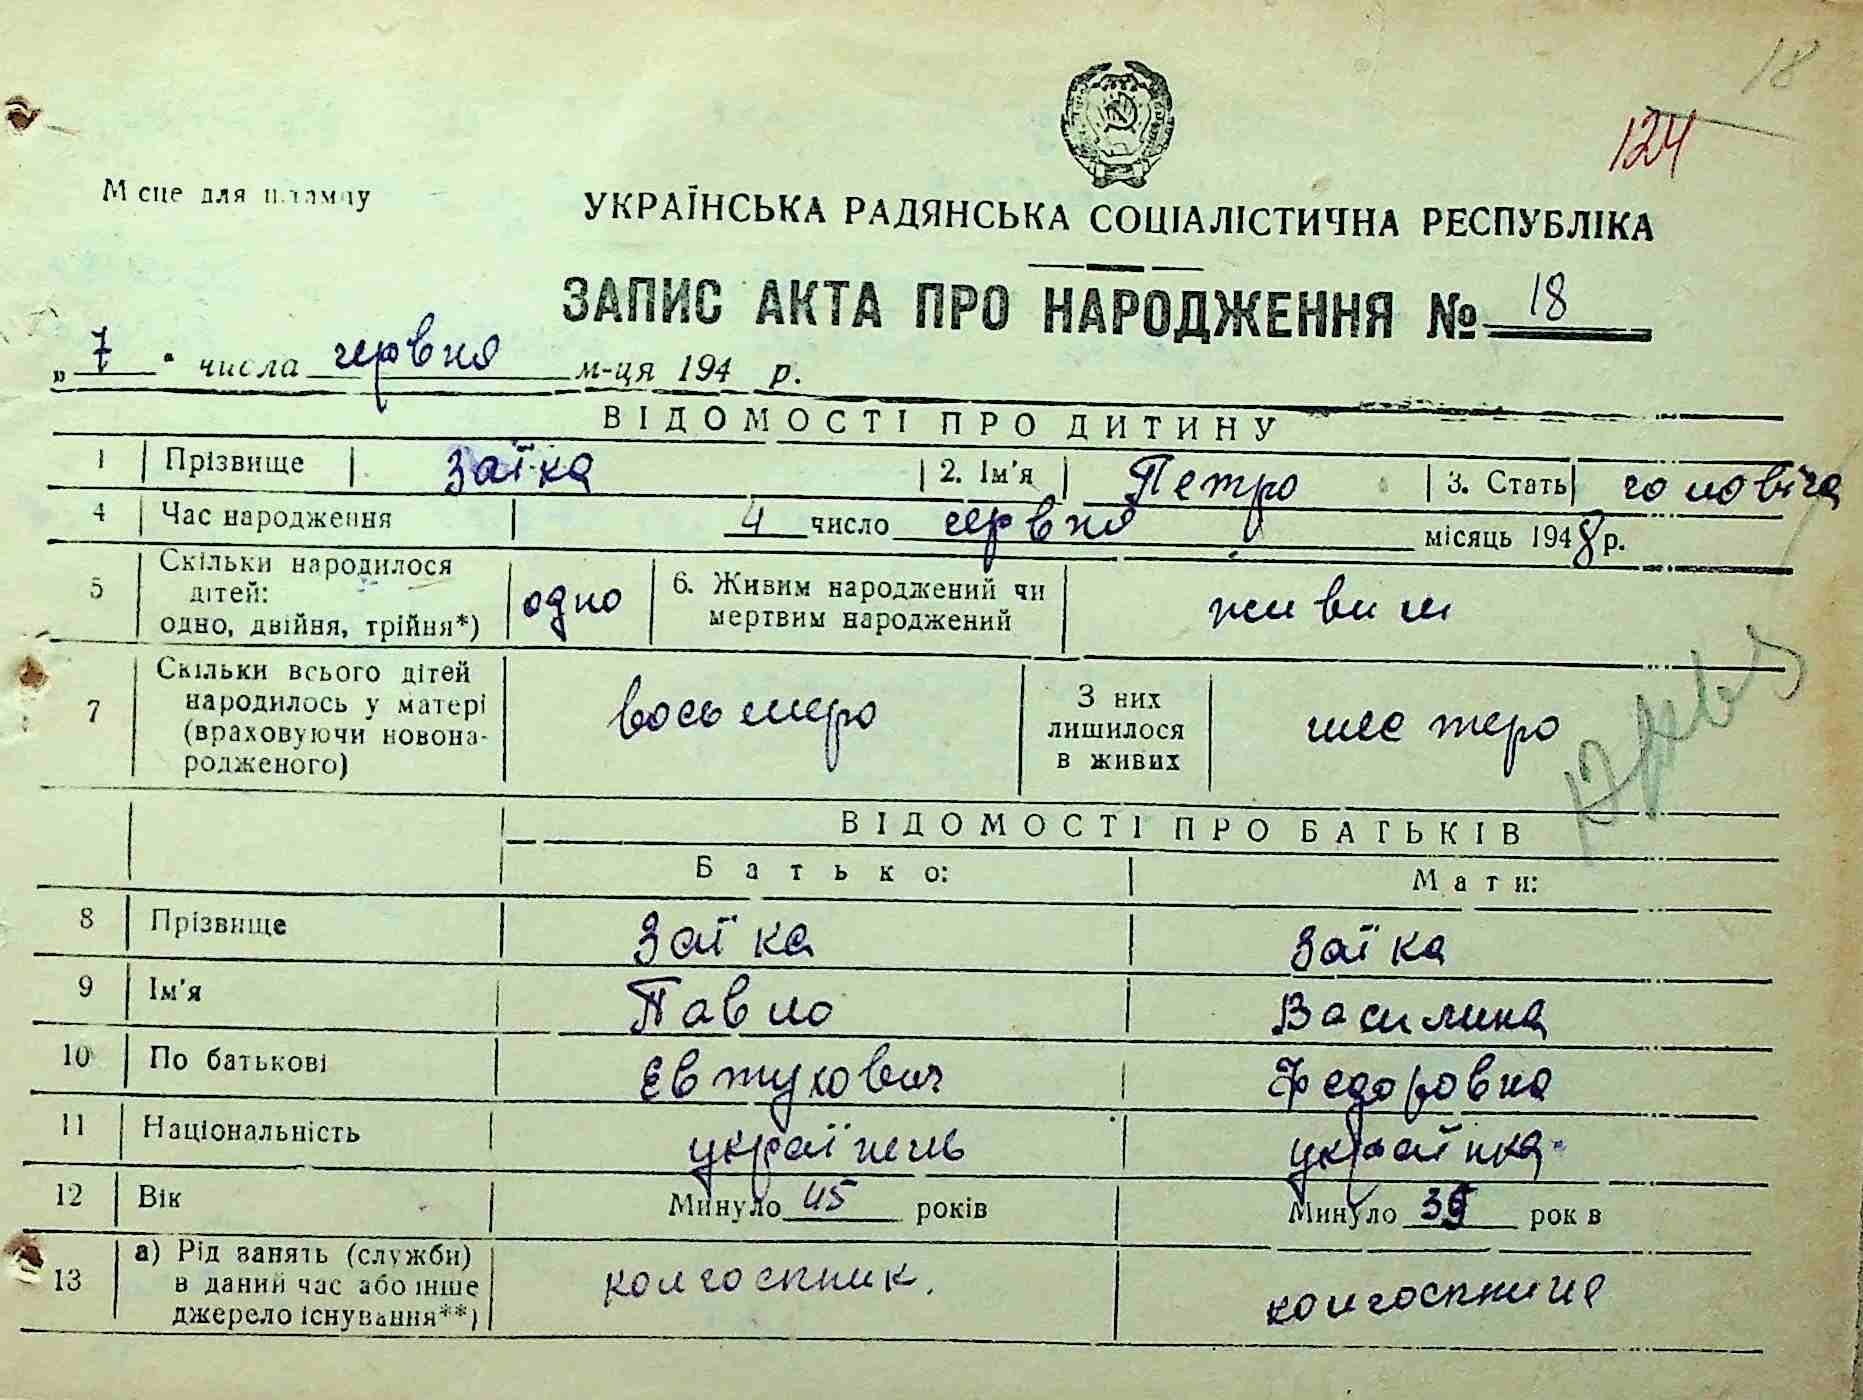 18
124
Місце для штампу
УКРАЇНСЬКА РАДЯНСЬКА СОЦІАЛІСТИЧНА РЕСПУБЛІКА
ЗАПИС АКТА ПРО НАРОДЖЕННЯ № 18
„ 7 “ числа червня м-ця 194 р.
ВІДОМОСТІ ПРО ДИТИНУ
1 Прізвище Заїка 2. Ім'я Петро 3. Стать чоловіча
4 Час народження 4 число червня місяць 1948 р.
5 Скільки народилося
дітей:
одно, двійня, трійня*)
одно
6. Живим народжений чи
мертвим народжений
живим
7 Скільки всього дітей
народилось у матері
(враховуючи новона-
родженого)
восьмеро
З них
лишилося
в живих
шестеро
ВІДОМОСТІ ПРО БАТЬКІВ
Батько: Мати:
8 Прізвище Заїка Заїка
9 Ім'я Павло Василина
10 По батькові Євтухович Федоровна
11 Національність українець українка
12 Вік Минуло 45 років Минуло 39 рок в
13 а) Рід занять (служби)
в даний час або інше
джерело існування**)
колгоспник. колгоспниця